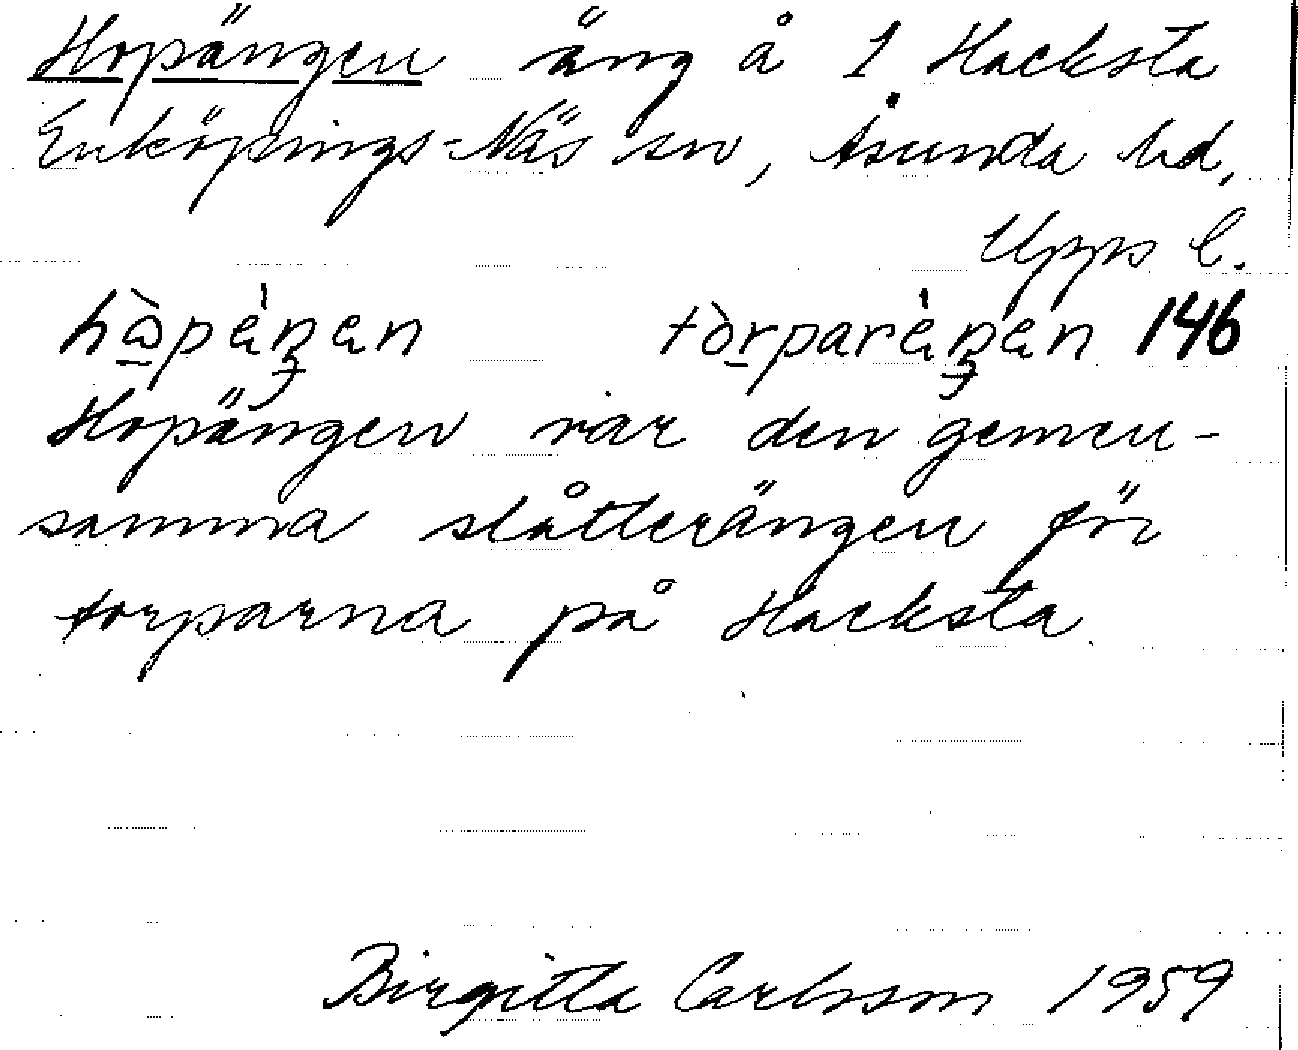 Hopängen äng å 1 Hacksta
Enköpings-Näs sn, Åsunda hd,
Upps l.
hɷ̀päŋen tòrparäŋen 146
Hopängen var den gemen-
samma slåtterängen för
torparna på Hacksta
Birgitta Carlsson 1959